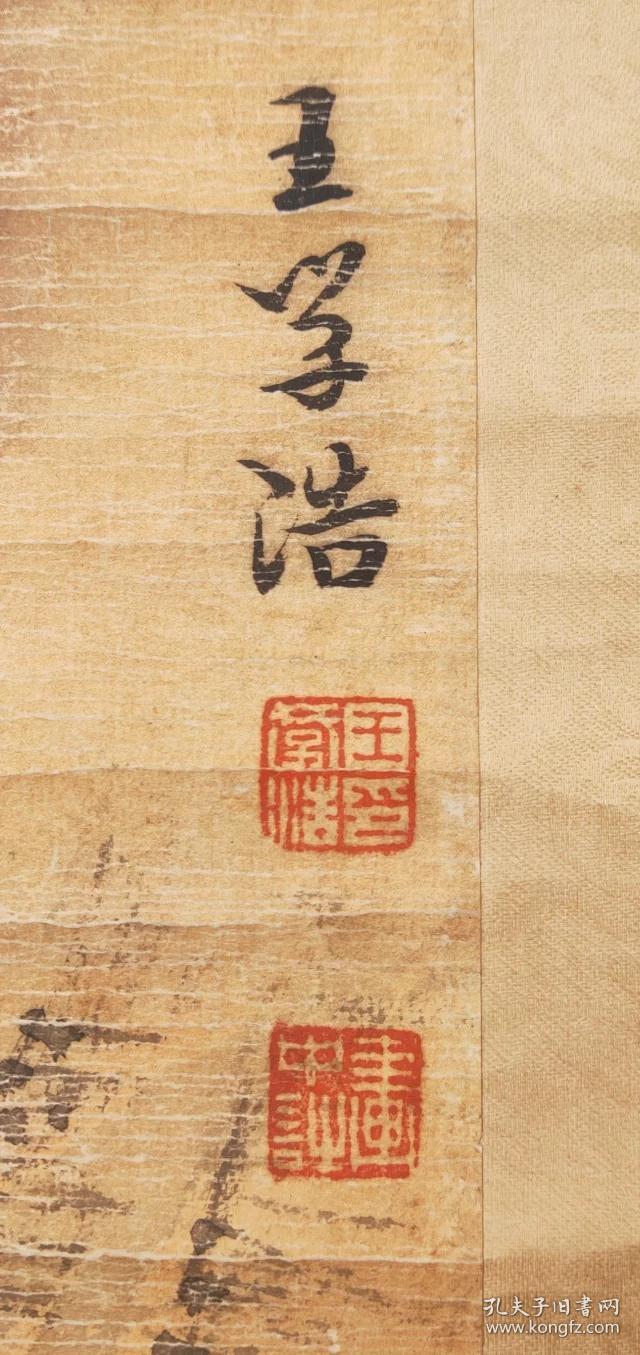 王学浩
王印學浩
孔夫子旧書网
www.kongfz.com